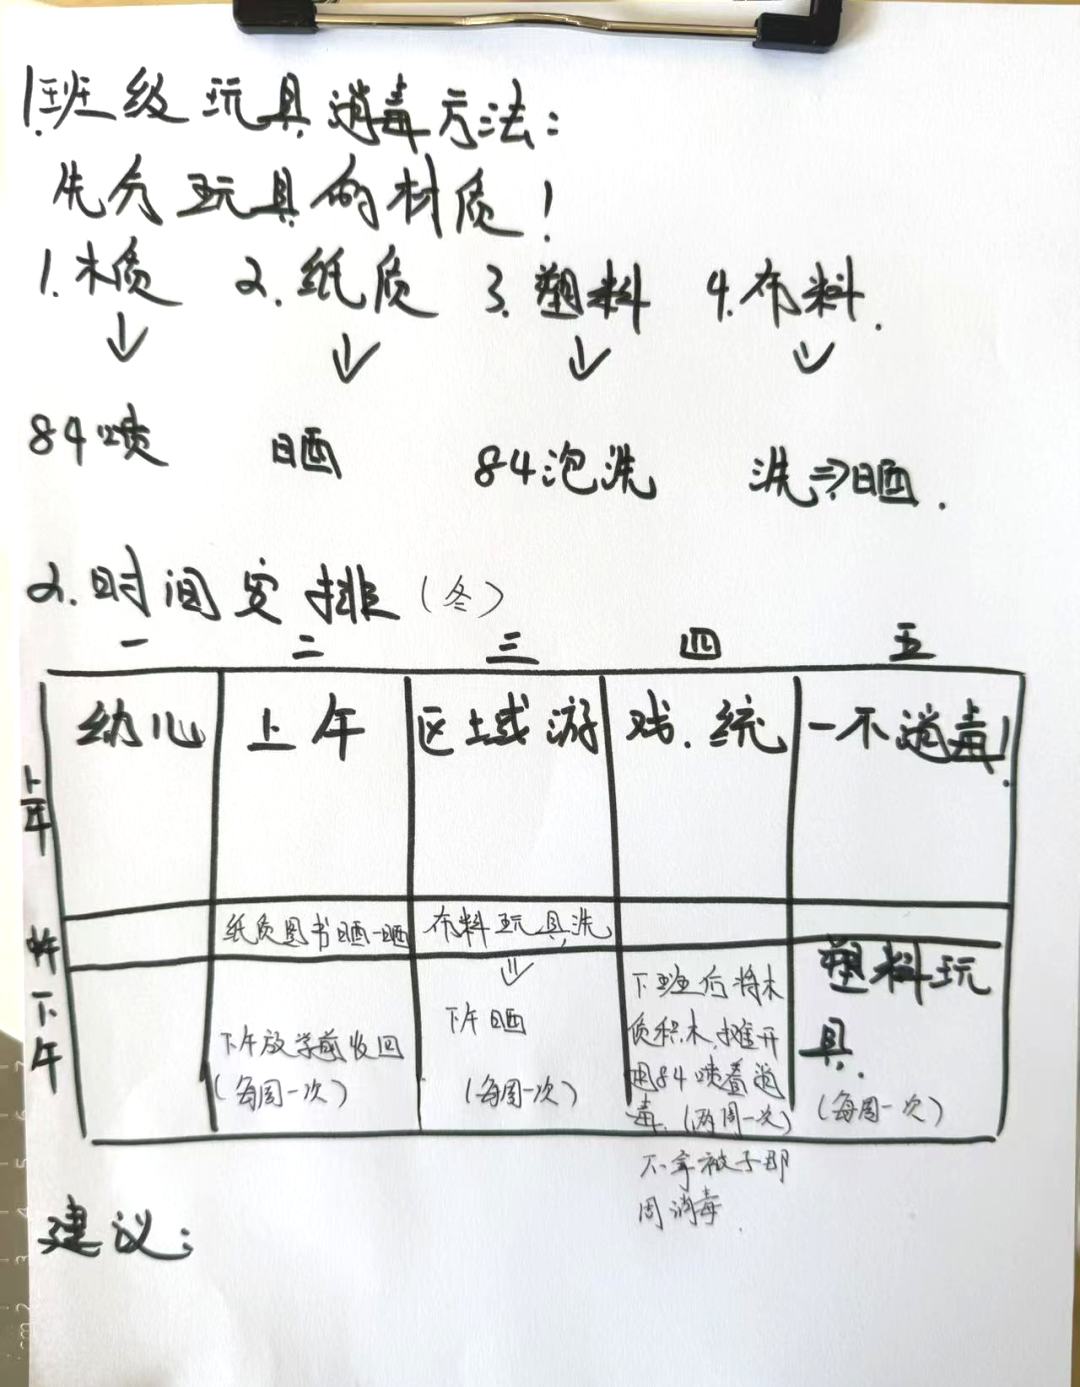 1.班级玩具消毒方法:
先分玩具的材质!
1.木质 2.纸质 3.塑料 4.布料.
↓ ↓ ↓ ↓
84喷 晒 84泡洗 洗⇒晒.
2.时间安排(冬)
一 二 三 四 五
上午 幼儿 上午 区域游 戏.统 一不消毒!
中午 纸质图书晒一晒 布料玩具洗
↓
下午
下午放学前收回
(每周一次)
下午晒
(每周一次)
下班后将木
质积木,摊开
用84喷壶消
毒.(两周一次)
不拿被子那
周消毒.
塑料玩
具.
(每周一次)
建议:
7
6
5
4
3
2
cm